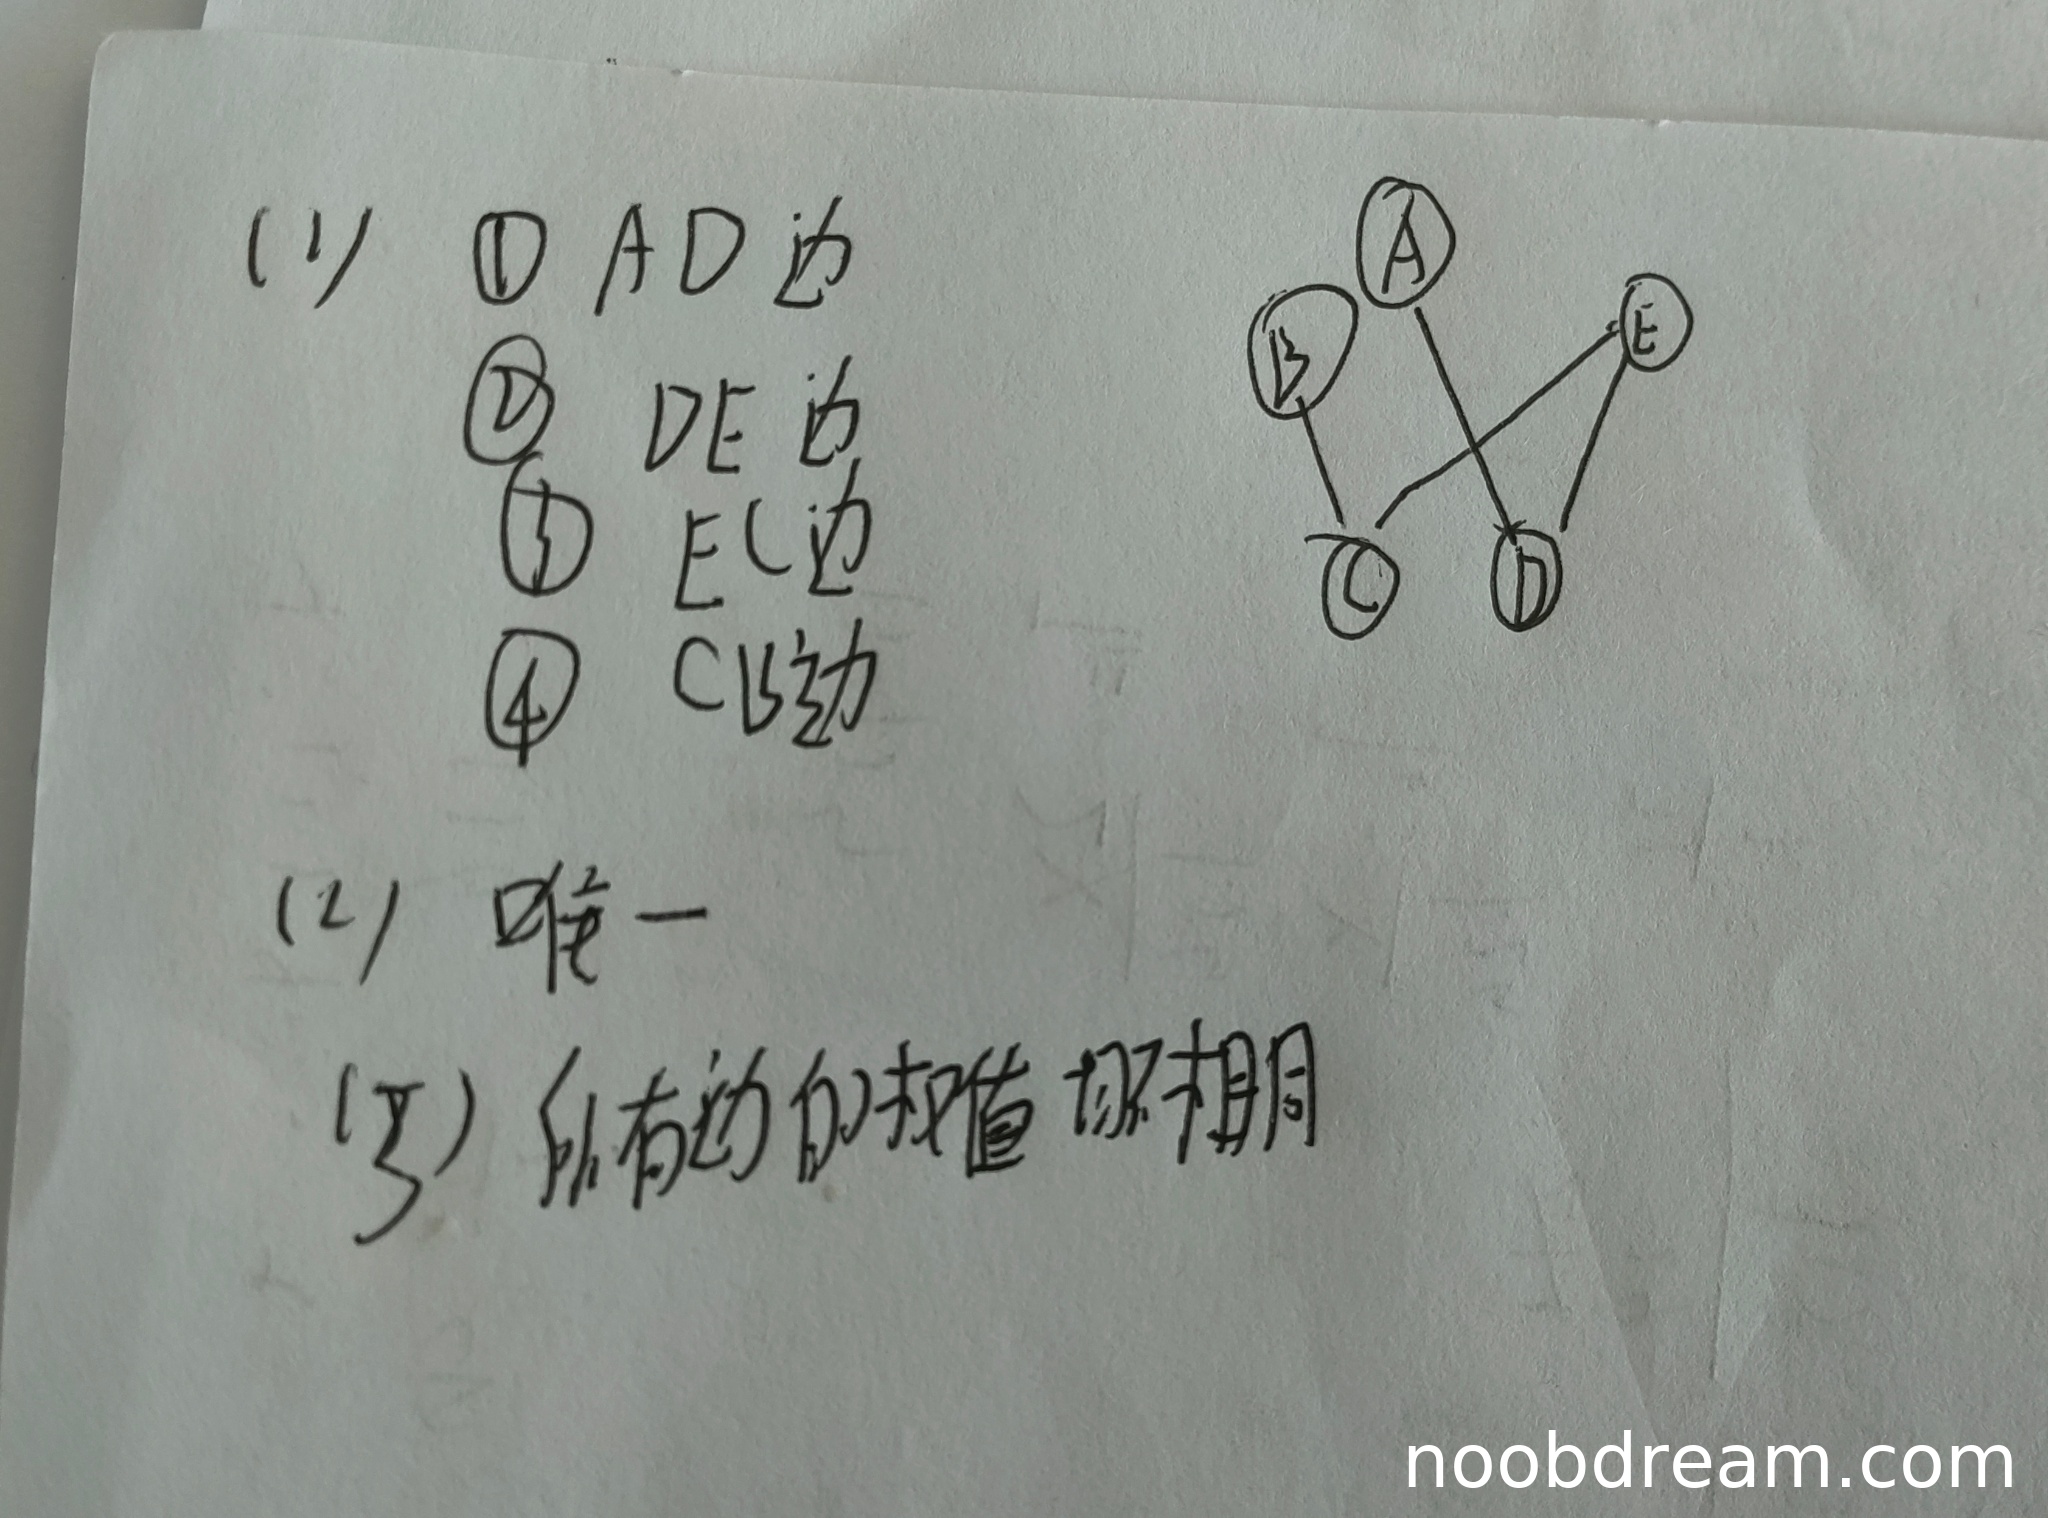 (1) ① AD边
② DE边
③ EC边
④ CB边
A
B
E
C
D
(2) 唯一
(3) 所有边的权值均不相同
noobdream.com